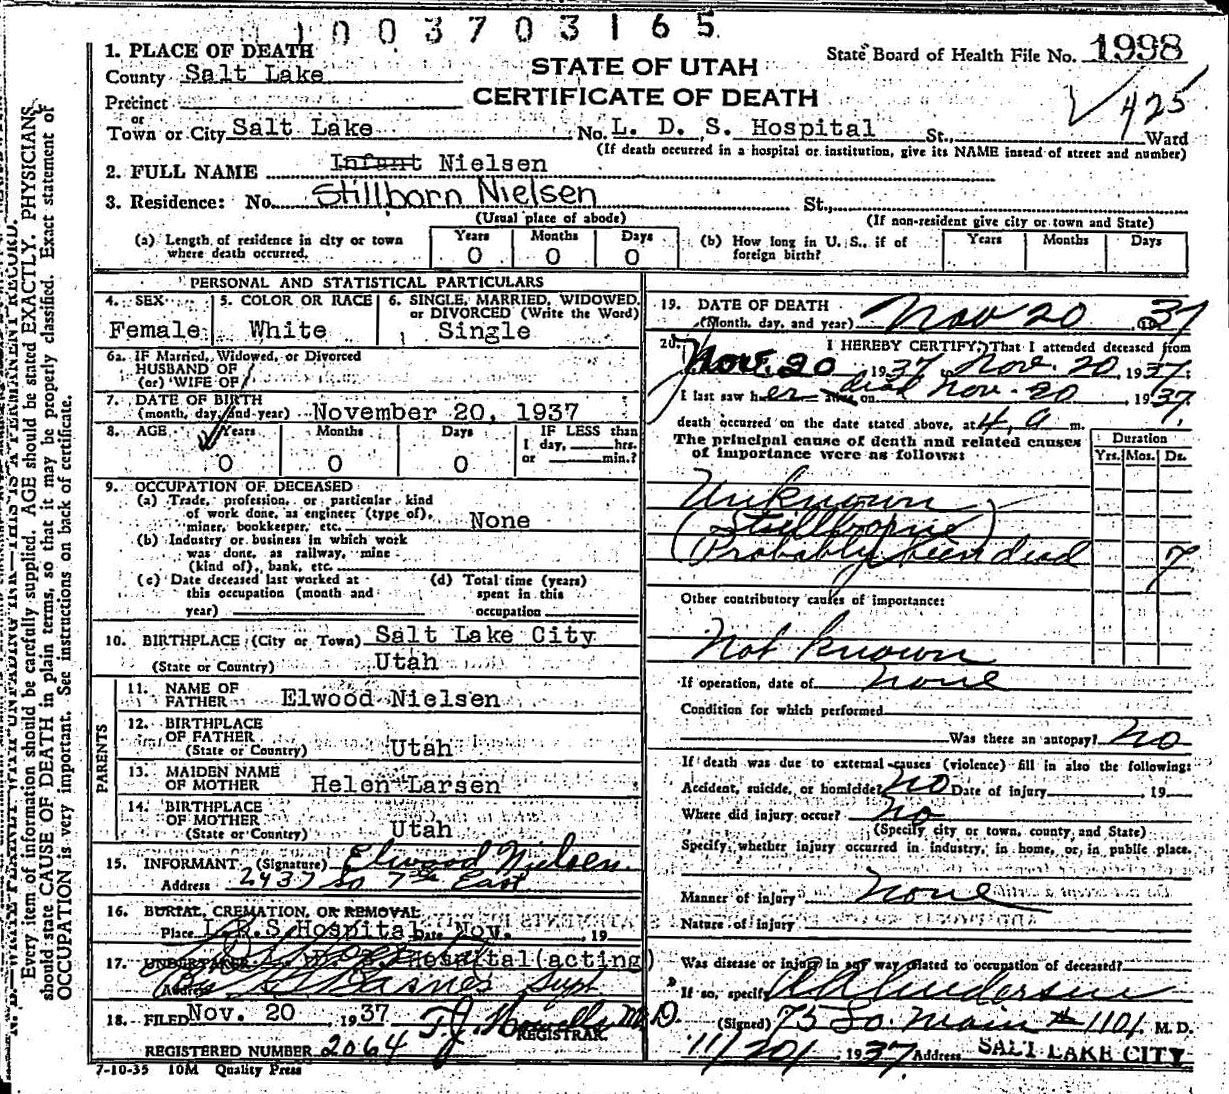 1003703165
1. PLACE OF DEATH
State Board of Health File No. 1998
County Salt Lake
STATE OF UTAH
Precinct
CERTIFICATE OF DEATH
√ 425
or
Town or City Salt Lake No. L. D. S. Hospital St., Ward
(If death occurred in a hospital or institution, give its NAME instead of street and number)
2. FULL NAME Infant Nielsen
3. Residence: No. Stillborn Nielsen St.,
(Usual place of abode) (If non-resident give city or town and State)
(a) Length of residence in city or town where death occurred. Years 0 Months 0 Days 0
(b) How long in U. S., if of foreign birth? Years Months Days
PERSONAL AND STATISTICAL PARTICULARS
4. SEX 5. COLOR OR RACE 6. SINGLE, MARRIED, WIDOWED, or DIVORCED (Write the Word)
Female White Single
6a. IF Married, Widowed, or Divorced
HUSBAND OF
(or) WIFE OF
7. DATE OF BIRTH
(month, day, and year) November 20, 1937
8. AGE Years Months Days IF LESS than
1 day, hrs.
or min.?
0 0 0
9. OCCUPATION OF DECEASED
(a) Trade, profession, or particular kind
of work done, as engineer (type of),
miner, bookkeeper, etc. None
(b) Industry or business in which work
was done, as railway, mine
(kind of), bank, etc.
(c) Date deceased last worked at
this occupation (month and
year)
(d) Total time (years)
spent in this
occupation
10. BIRTHPLACE (City or Town) Salt Lake City
(State or Country) Utah
PARENTS
11. NAME OF
FATHER Elwood Nielsen
12. BIRTHPLACE
OF FATHER
(State or Country) Utah
13. MAIDEN NAME
OF MOTHER Helen Larsen
14. BIRTHPLACE
OF MOTHER
(State or Country) Utah
15. INFORMANT (Signature) Elwood Nielsen
Address 2437 So 7th East
16. BURIAL, CREMATION, OR REMOVAL
Place L.D.S. Hospital Date Nov. , 19
17. UNDERTAKER Hospital (acting)
(Address) Supt
18. FILED Nov. 20, 1937 M.D.
REGISTRAR
REGISTERED NUMBER 2064
7-10-35 10M Quality Press
19. DATE OF DEATH
(Month, day, and year) Nov 20 1937
20. I HEREBY CERTIFY, That I attended deceased from
Nov. 20 1937 to Nov. 20, 1937.
I last saw her alive dead on Nov. 20, 1937.
death occurred on the date stated above, at 4, a m.
The principal cause of death and related causes
of importance were as follows:
Duration
Yrs. Mos. Ds.
Unknown
(Stillborne)
(Probably been dead 7
Other contributory causes of importance:
Not known
If operation, date of none
Condition for which performed
Was there an autopsy? no
If death was due to external causes (violence) fill in also the following:
Accident, suicide, or homicide? no Date of injury , 19
Where did injury occur? no
(Specify city or town, county and State)
Specify whether injury occurred in industry, in home, or in public place.
Manner of injury none
Nature of injury
Was disease or injury in any way related to occupation of deceased?
If so, specify
(Signed) 75 So. Main # 1101. M. D.
11/20/, 1937. Address SALT LAKE CITY
Every item of information should be carefully supplied. AGE should be stated EXACTLY. PHYSICIANS
should state CAUSE OF DEATH in plain terms, so that it may be properly classified. Exact statement of
OCCUPATION is very important. See instructions on back of certificate.